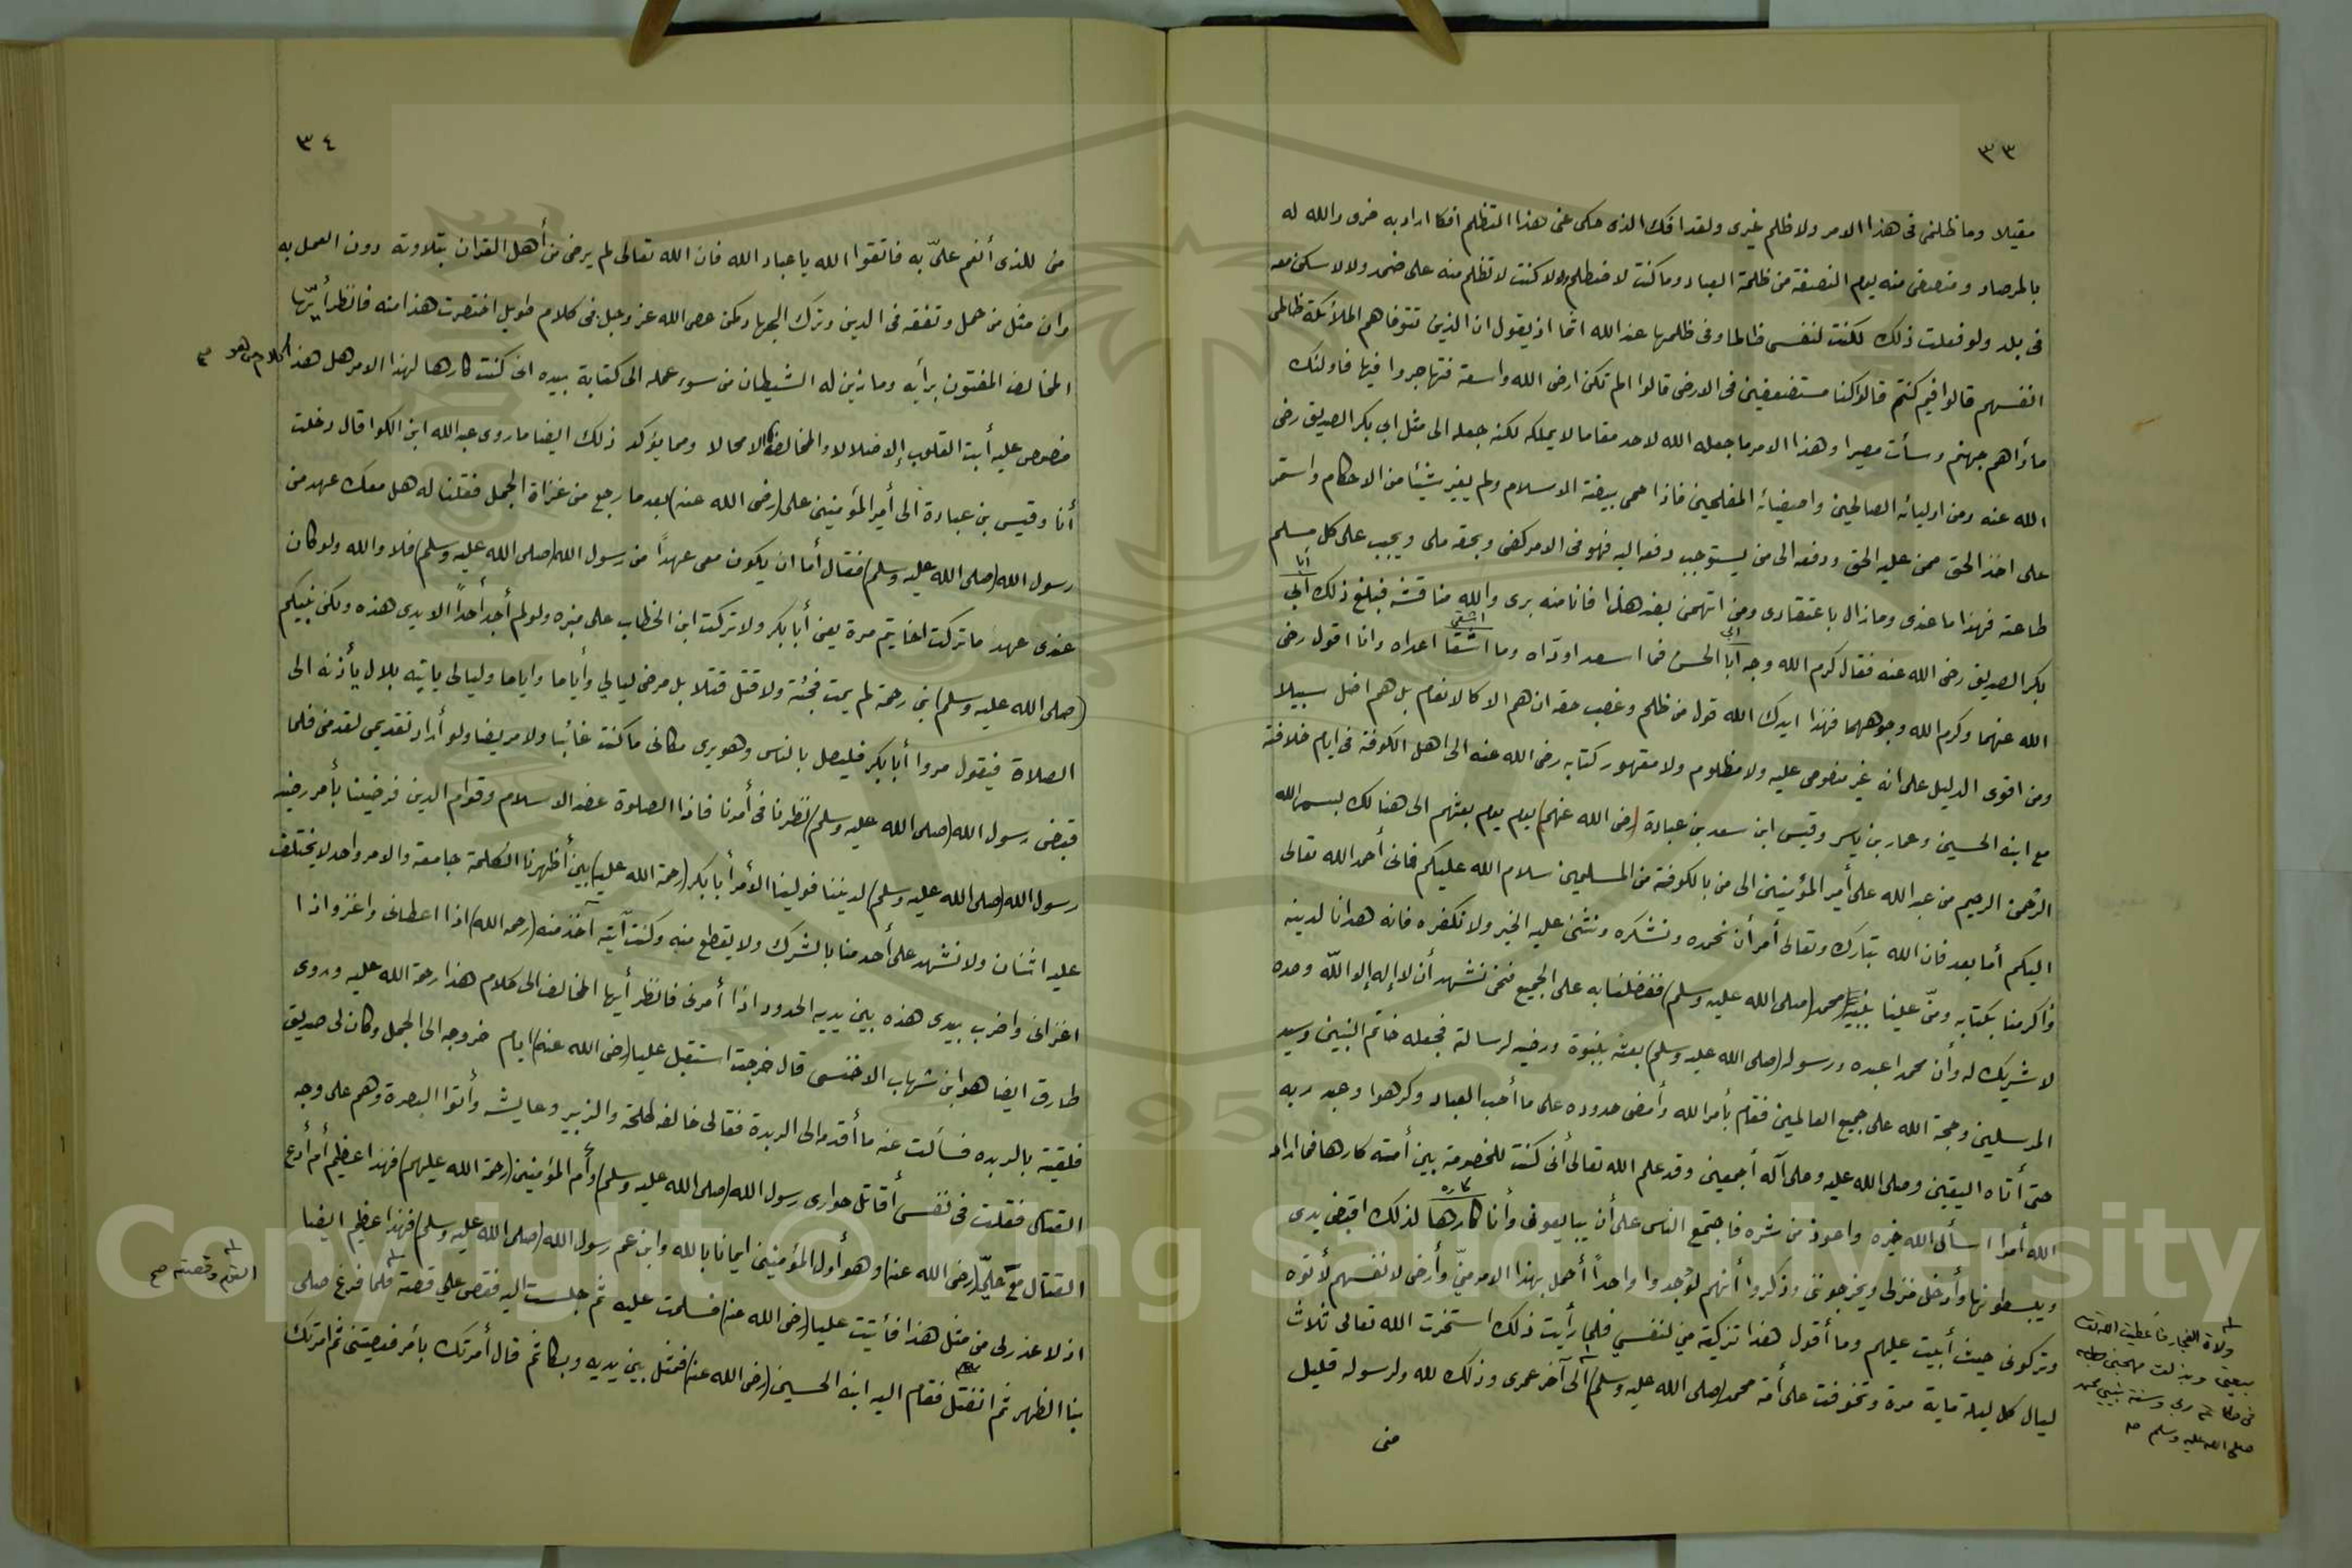 ٣٣
مقيلا وما ظلمنى فى هذا الامر ولا ظلم غيرى ولقد افك الذى حكى عنى هذا التظلم افكا اراد به خرق والله له
بالمرصاد ومنتصف منه يوم النصفة من ظلمة العباد وما كنت لاضطلم ولا كنت لا تظلم منه على ضمد ولا لاسكن معه
فى بلد ولو فعلت ذلك لكنت لنفسى ظالما وفى ظلمها عند الله اثما اذ يقول ان الذين تتوفاهم الملائكة ظالمى
انفسهم قالوا فيم كنتم قالوا كنا مستضعفين فى الارض قالوا الم تكن ارض الله واسعة فتهاجروا فيها فاولئك
مأواهم جهنم وسأت مصيرا وهذا الامر ما جعله الله لاحد مقاما لا يملكه لكنه جعله الى مثل ابي بكر الصديق رضى
الله عنه ومن اوليائه الصالحين واصفيائه المفلحين فاذا حمى بيضة الاسلام ولم يغير شيئا من الاحكام واستمر
على اخذ الحق ممن عليه الحق ودفعه الى من يستوجب دفعه اليه فهو فى الامر كفى وبحقه ملى ويجب على كل مسلم
طاعته فهذا ما عندى وما زال باعتقادى ومن اتهمنى بغير هذا فانا منه برى والله مناقشه فبلغ ذلك أبي
أبا
بكر الصديق رضى الله عنه فقال كرم الله وجه أبا الحسن فما اسعد اودّاه وما اشقا اعداه وانا اقول رضى
ابي اشقى
الله عنهما وكرم الله وجوههما فهذا ايدك الله قول من ظلم وغصب حقه ان هم الا كالانعام بل هم اضل سبيلا
ومن اقوى الدليل على انه غير منصوص عليه ولا مظلوم ولا مقهور كتابه رضى الله عنه الى اهل الكوفة فى ايام خلافته
مع ابنه الحسين وعمار بن ياسر وقيس ابن سعد بن عبادة (رضى الله عنهم) يوم يوم بعثهم الى هنالك بسم الله
الرحمن الرحيم من عبد الله على أمير المؤمنين الى من بالكوفة من المسلمين سلام الله عليكم فانى أحمد الله تعالى
اليكم أما بعد فان الله تبارك وتعالى أمر أن نحمده ونشكره ونثنى عليه الخير ولا نكفره فانه هدانا لدينه
وأكرمنا بكتابه ومنّ علينا بنبيه محمد (صلى الله عليه وسلم) ففضلنا به على الجميع فنحن نشهد أن لا إله إلا الله وحده
لا شريك له وأن محمدا عبده ورسوله (صلى الله عليه وسلم) بعثه بنبوة ورضيه لرسالة فجعله خاتم النبين وسيد
المرسلين وحجة الله على جميع العالمين فقام بأمر الله وأمضى حدوده على ما أحب العباد وكرهوا وعبد ربه
حتى أتاه اليقين وصلى الله عليه وعلى آله أجمعين وقد علم الله تعالى أنى كنت للخصومة بين أمته كارها فما اراد
الله أمرا اسأل الله خيره واعوذ من شره فاجتمع الناس على أن يبايعونى وأنا كارها لذلك اقبض يدى
كاره
ويبسطونها وأدخل منزلى ويخرجوننى وذكروا أنهم لو وجدوا واحداً أحمل بهذا الامر منّي وأرضى لانفسهم لأتوه
وتركونى حيث أبيت عليهم وما أقول هذا تزكية مني لنفسي فلما رأيت ذلك استخرت الله تعالى ثلاث
ليال كل ليلة مايه مرة وتخوفت على أمة محمد (صلى الله عليه وسلم) الى آخر عمرى وذلك لله ولرسوله قليل
منى
ولاة الفجار فأعطيت الله
بيعتي وبذلت مهجتي
ربي وسنة نبيي محمد
صلى الله عليه وسلم صح
٣٤
من للذى أنعم علىّ به فاتقوا الله يا عباد الله فان الله تعالى لم يرض من أهل القران بتلاوته دون العمل به
وان مثل من حمل وتفقه فى الدين وترك الجهاد كمن عصى الله عز وجل فى كلام طويل اختصرت هذا منه فانظر أيّها
المخالف المفتون برأيه وما زين له الشيطان من سوء عمله الى كتابة بيده انى كنت كارها لهذا الامر هل هذا كلام من هو صح
منصوص عليه أبت القلوب إلا ضلالا والمخالف الا محالا ومما يؤكد ذلك ايضا ما روى عبد الله ابن الكوا قال دخلت
أنا وقيس بن عبادة الى أمير المؤمنين على (رضى الله عنه) بعد ما رجع من غزاة الجمل فقلنا له هل معك عهد من
رسول الله (صلى الله عليه وسلم) فقال أما ان يكون معى عهداً من رسول الله (صلى الله عليه وسلم) فلا والله ولو كان
عندى عهد ما تركت اخا يتم مرة يعنى أبا بكر ولا تركت ابن الخطاب على منبره ولو لم أجد أحداً الا يدى هذه ولكن نبيكم
(صلى الله عليه وسلم) نبي رحمة لم يمت فجئة ولا قتل قتلا بل مرض ليالي وأياما واياما وليالى يأتيه بلال يأذنه الى
الصلاة فيقول مروا أبا بكر فليصل بالناس وهو يرى مكانى ما كنت غائبا ولا مريضا ولو أراد تقديمى لقدمنى فلما
قبض رسول الله (صلى الله عليه وسلم) نظرنا فى أمرنا فاذا الصلوة عضد الاسلام وقوام الدين فرضينا بأمر رضيه
رسول الله (صلى الله عليه وسلم) لديننا فولينا الأمر أبا بكر (رحمة الله عليه) بين أظهرنا الكلمة جامعة والامر واحد لا يختلف
عليه اثنان ولا نشهد على أحد منا بالشرك ولا يقطع منه وكنت آتيه آخذ منه (رحمه الله) اذا اعطانى واغزو اذا
اغزانى واضرب بيدى هذه بين يديه الحدود اذا أمرنى فانظر أيها المخالف الى كلام هذا رحمة الله عليه وروى
طارق ايضا هو ابن شهاب الاخنسى قال خرجت استقبل عليا (رضى الله عنه) ايام خروجه الى الجمل وكان لى صديق
فلقيته بالربده فسألت عنه ما أقدمه الى الربدة فقالى خالفه طلحة والزبير وعايشه وأتوا البصرة وهم على وجه
القتال فقلت فى نفسى أقاتل حوارى رسول الله (صلى الله عليه وسلم) وأم المؤمنين (رحمة الله عليهم) فهذا عظيم أم أدع
القتال مع عليّ (رضى الله عنه) وهو أول المؤمنين ايمانا بالله وابن عم رسول الله (صلى الله عليه وسلم) فهذا عظيم ايضا
اذ لا عذر لى من مثل هذا فأتيت عليا (رضى الله عنه) فسلمت عليه ثم جلست اليه فقص علي قصة فلما فرغ صلى
القوم وقصته صح
بنا الظهر ثم انفتل فقام اليه ابنه الحسين (رضى الله عنه) فمثل بين يديه وبكا ثم قال أمرتك بأمر فعصيتنى ثم امرتك
Copyright © King Saud University